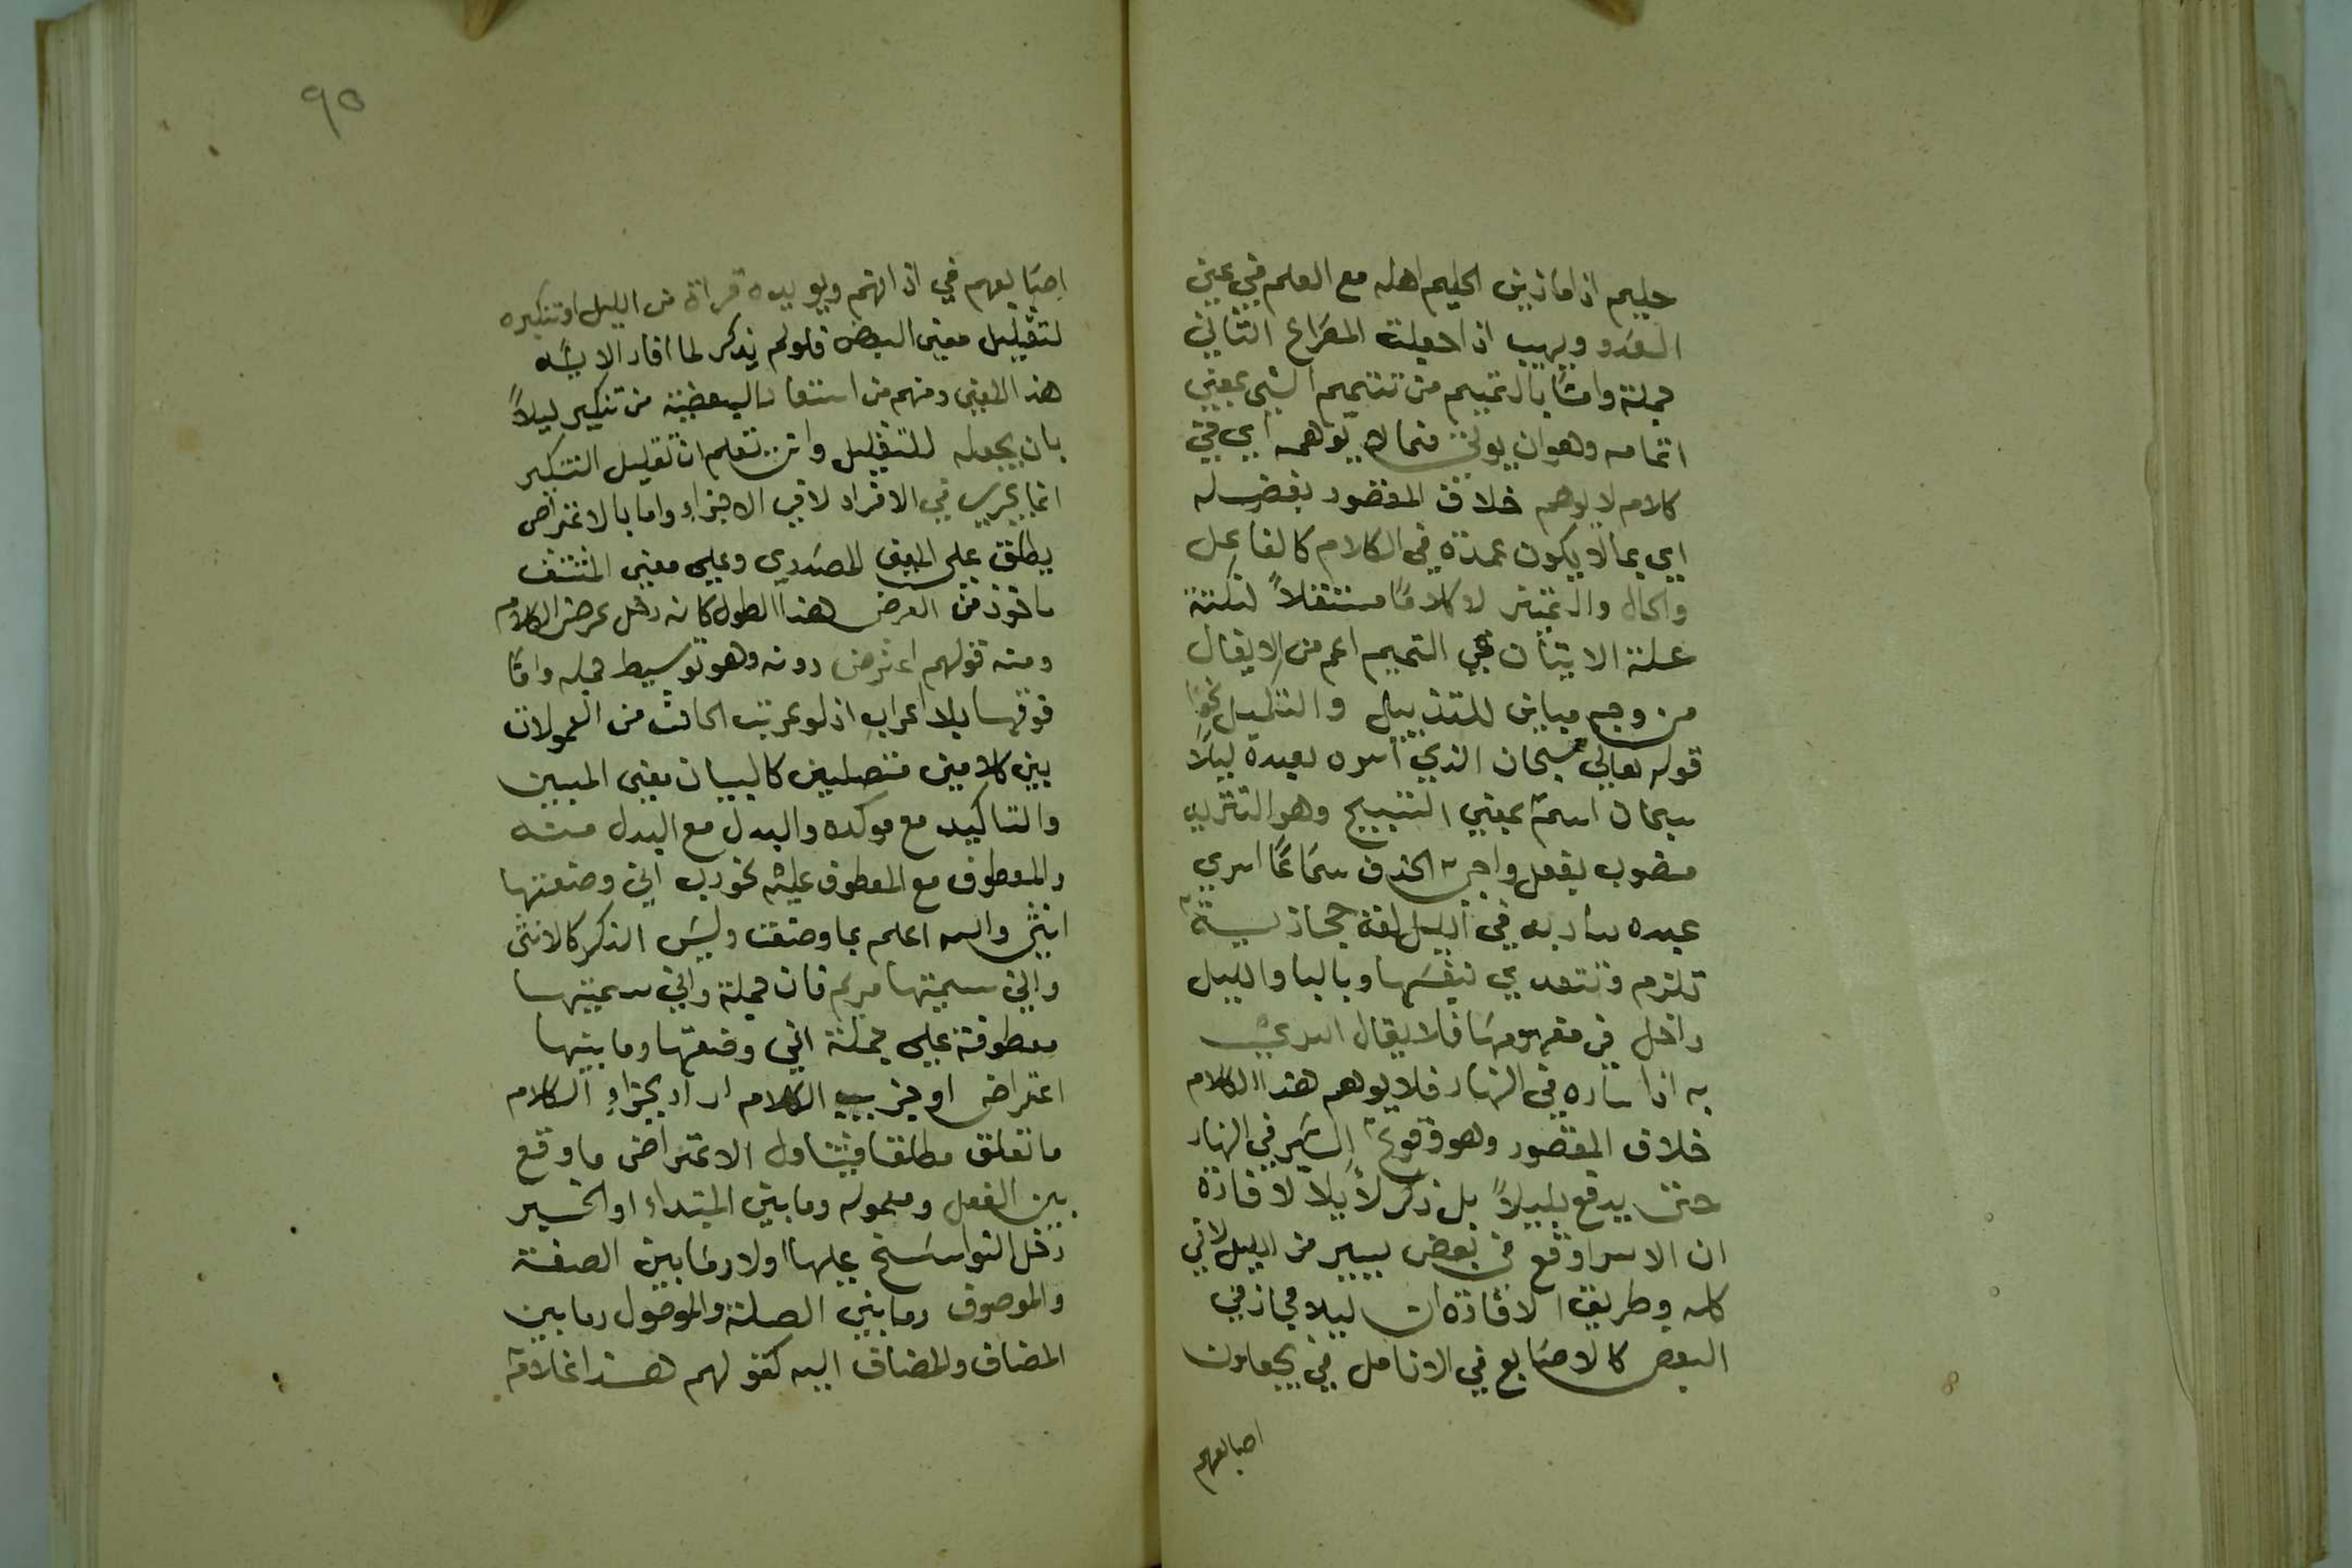 حليم اذا ما زين الحليم اهله مع العلم في عين
العدو ويهيب اذا جعلت المصراع الثاني
جملة واما بالتميم من تتميم الشي بمعني
اتمامه وهو ان يوتي فيما لا يوهمه اي في
كلام لا يوهم خلاف المقصود بفضله
اي بما لا يكون عمدة في الكلام كالفاعل
والحال والتميز لا كلاما مستقلاً لنكتة
علة الايتان في التميم اعم من الايغال
من وجه مباين للتذييل والتكميل نحو
قوله تعالي سبحان الذي اسره بعبده ليلا
سبحان اسم بمعني التسبيح وهو التنزيه
منصوب بفعل واجب الحذف سماعا اسري
عبده سار به في الليل لغة حجازية
تلزم وتتعدي بنفسها وبالبا والليل
داخل في مفهومها فلا يقال اسري
به اذا ساره في النهار فلا يوهم هذا الكلام
خلاف المقصود وهو وقوع السير في النهار
حتى يدفع بليلاً بل ذكر ليلا لافادة
ان الاسرا وقع في بعض يسير من الليل لا في
كله وطريق الافادة ان ليلا مجاز في
البعض كالاصابع في الانامل في يجعلون
اصابعهم
٩٥
اصابعهم في اذانهم ويويده قراة من الليل او تنكيره
لتقليل معنى البعض فلو لم يذكر لما افاد الاية
هذا المعنى ومنهم من استفاد البعضية من تنكير ليلاً
بان يجعله للتقليل وانت تعلم ان تقليل التنكير
انما يجري في الافراد لا في الاجزاء واما بالاعتراض
يطلق علي المعنى المصدري وعلي معنى المشتق
ماخوذ من العرض هذا الطول كانه دخل عرض الكلام
ومنه قولهم اعترض دونه وهو توسيط جمله واما
فوقها بلا اعراب اذ لو عربت لكانت من المعمولات
بين كلامين متصلين كالبيان معنى المبين
والتاكيد مع موكده والبدل مع البدل منه
والمعطوف مع المعطوف عليه نحو رب اني وضعتها
انثى والله اعلم بما وضعت وليس الذكر كالانثى
واني سميتها مريم فان جملة واني سميتها
معطوفة علي جملة اني وضعتها وما بينها
اعتراض او جزيي الكلام اراد بجزاء الكلام
ما تعلق مطلقا فيتناول الاعتراض ما وقع
بين الفعل ومعموله وما بين المبتداء او الخبر
دخل النواسخ عليها اولا وما بين الصفة
والموصوف وما بين الصلة والموصول وما بين
المضاف والمضاف اليه كقولهم هذا غلام